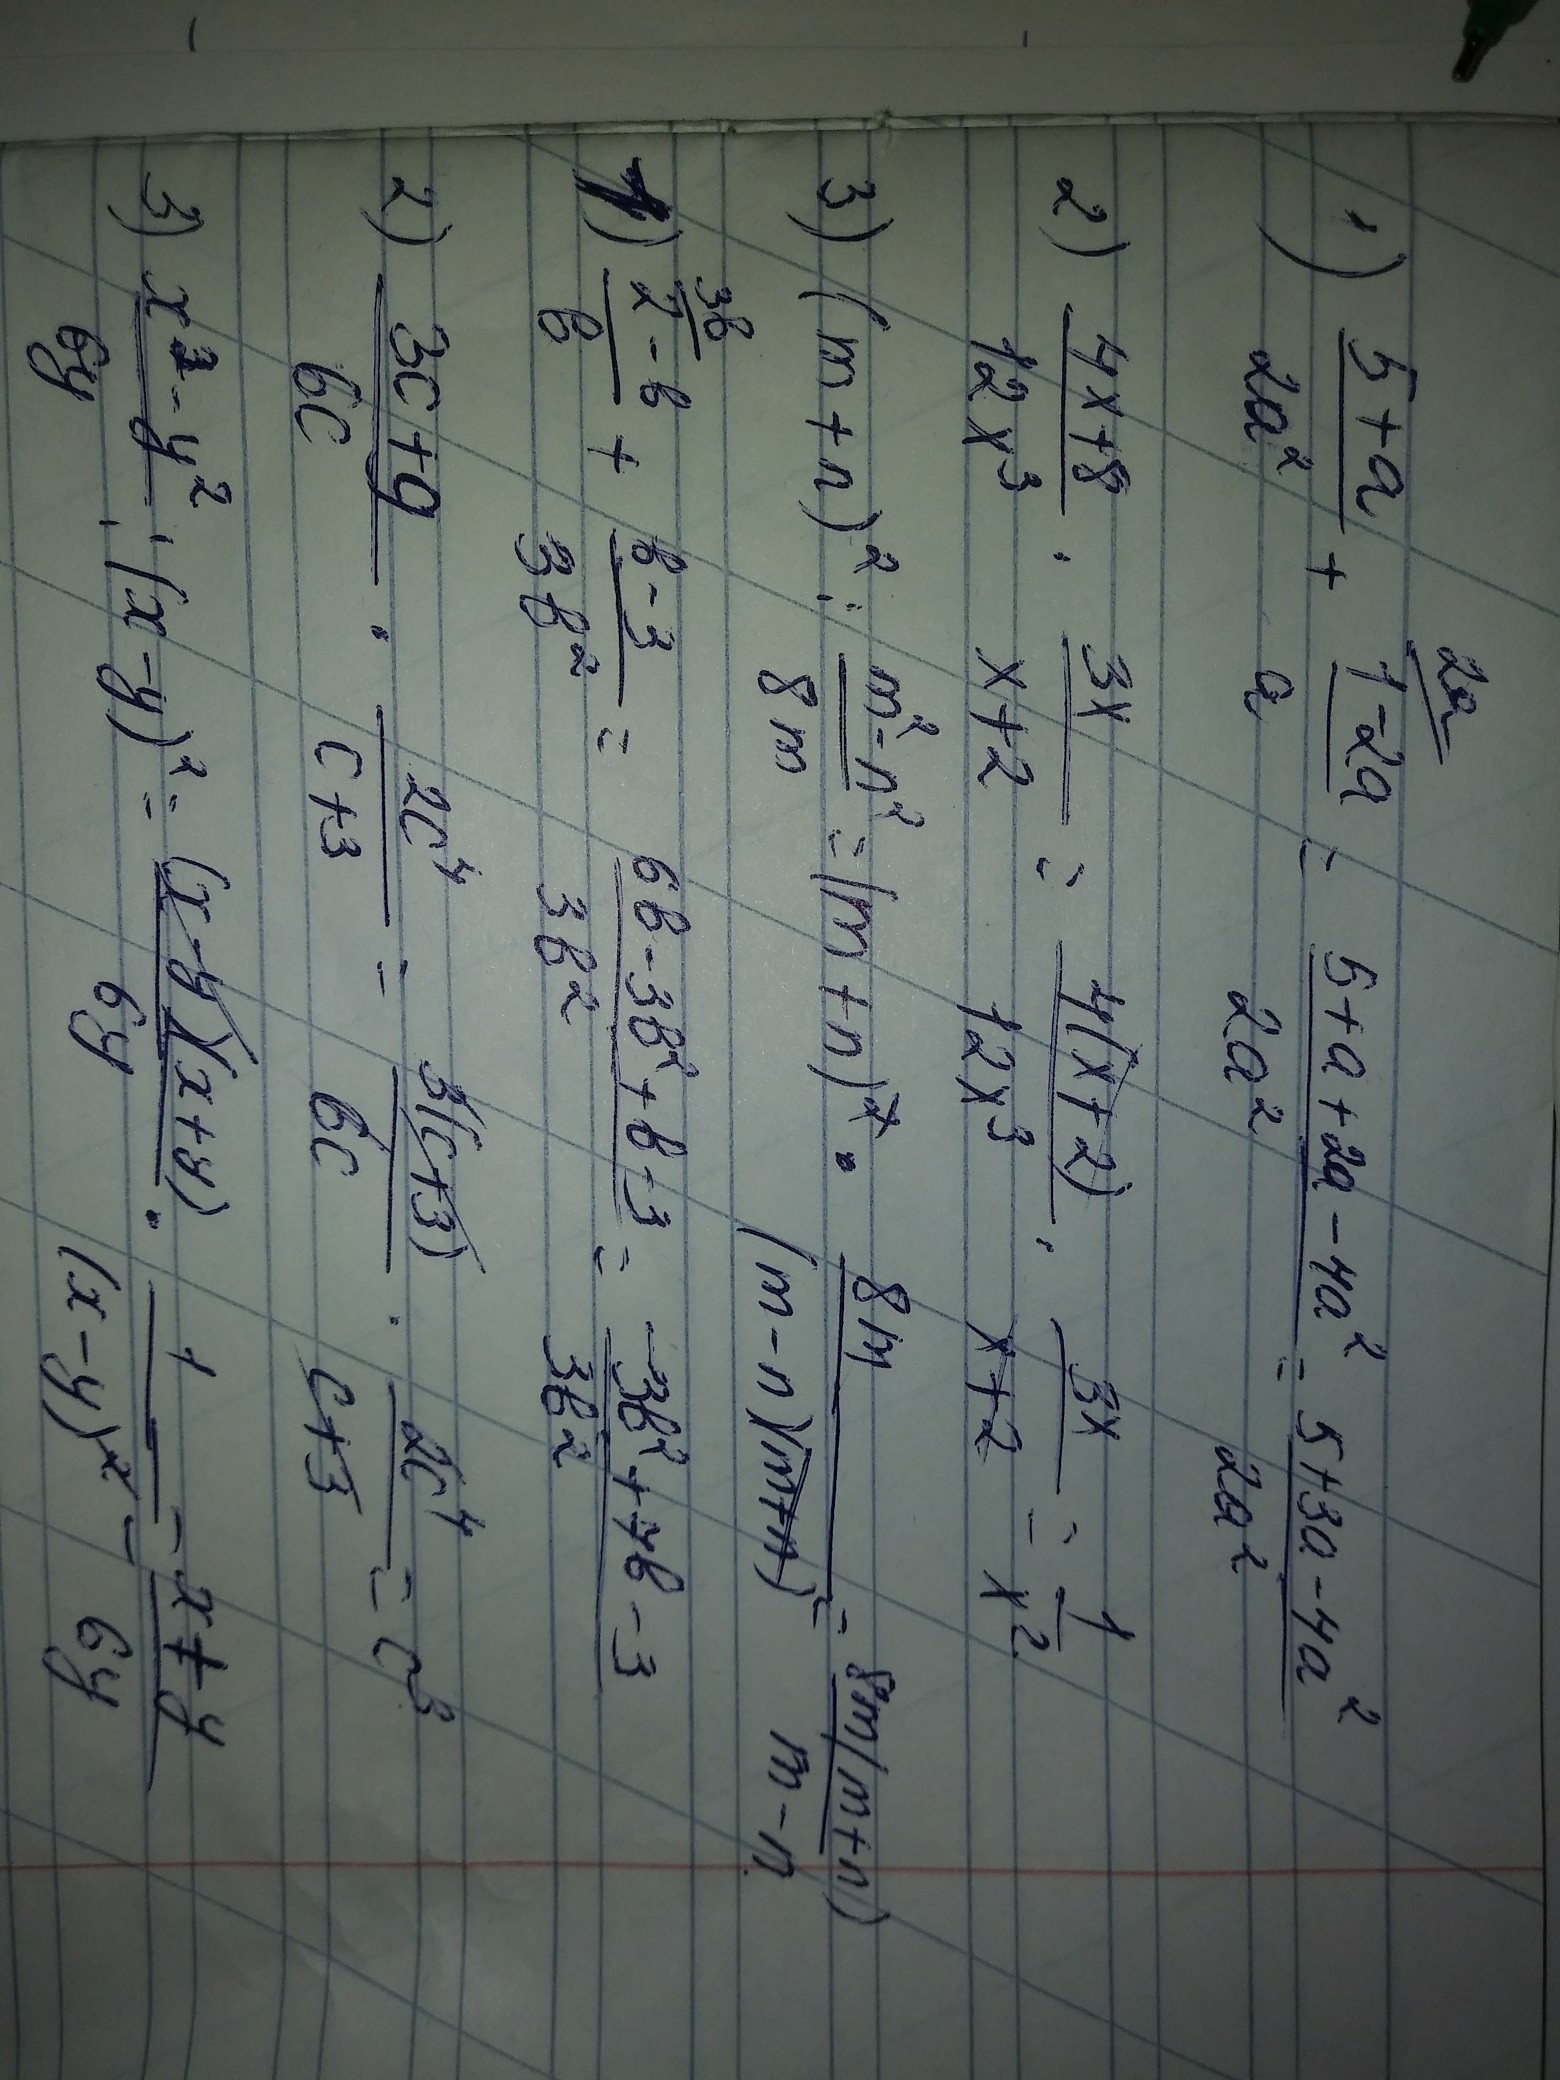 1) (5+a)/(2a²) + (1-2a)/a = (5+a+2a-4a²)/(2a²) = (5+3a-4a²)/(2a²)
2a
2) (4x+8)/(12x³) · 3x/(x+2) = 4(x+2)/(12x³) · 3x/(x+2) = 1/x²
3) (m+n)² : (m²-n²)/(8m) = (m+n)² · 8m/((m-n)(m+n)) = 8m(m+n)/(m-n)
3в
1) (2-в)/в + (в-3)/(3в²) = (6в-3в²+в-3)/(3в²) = (-3в²+7в-3)/(3в²)
2) (3c+9)/(6c) · 2c⁴/(c+3) = 3(c+3)/(6c) · 2c⁴/(c+3) = c³
3) (x²-y²)/(6y) : (x-y)² = (x-y)(x+y)/(6y) · 1/(x-y)² = (x+y)/(6y)